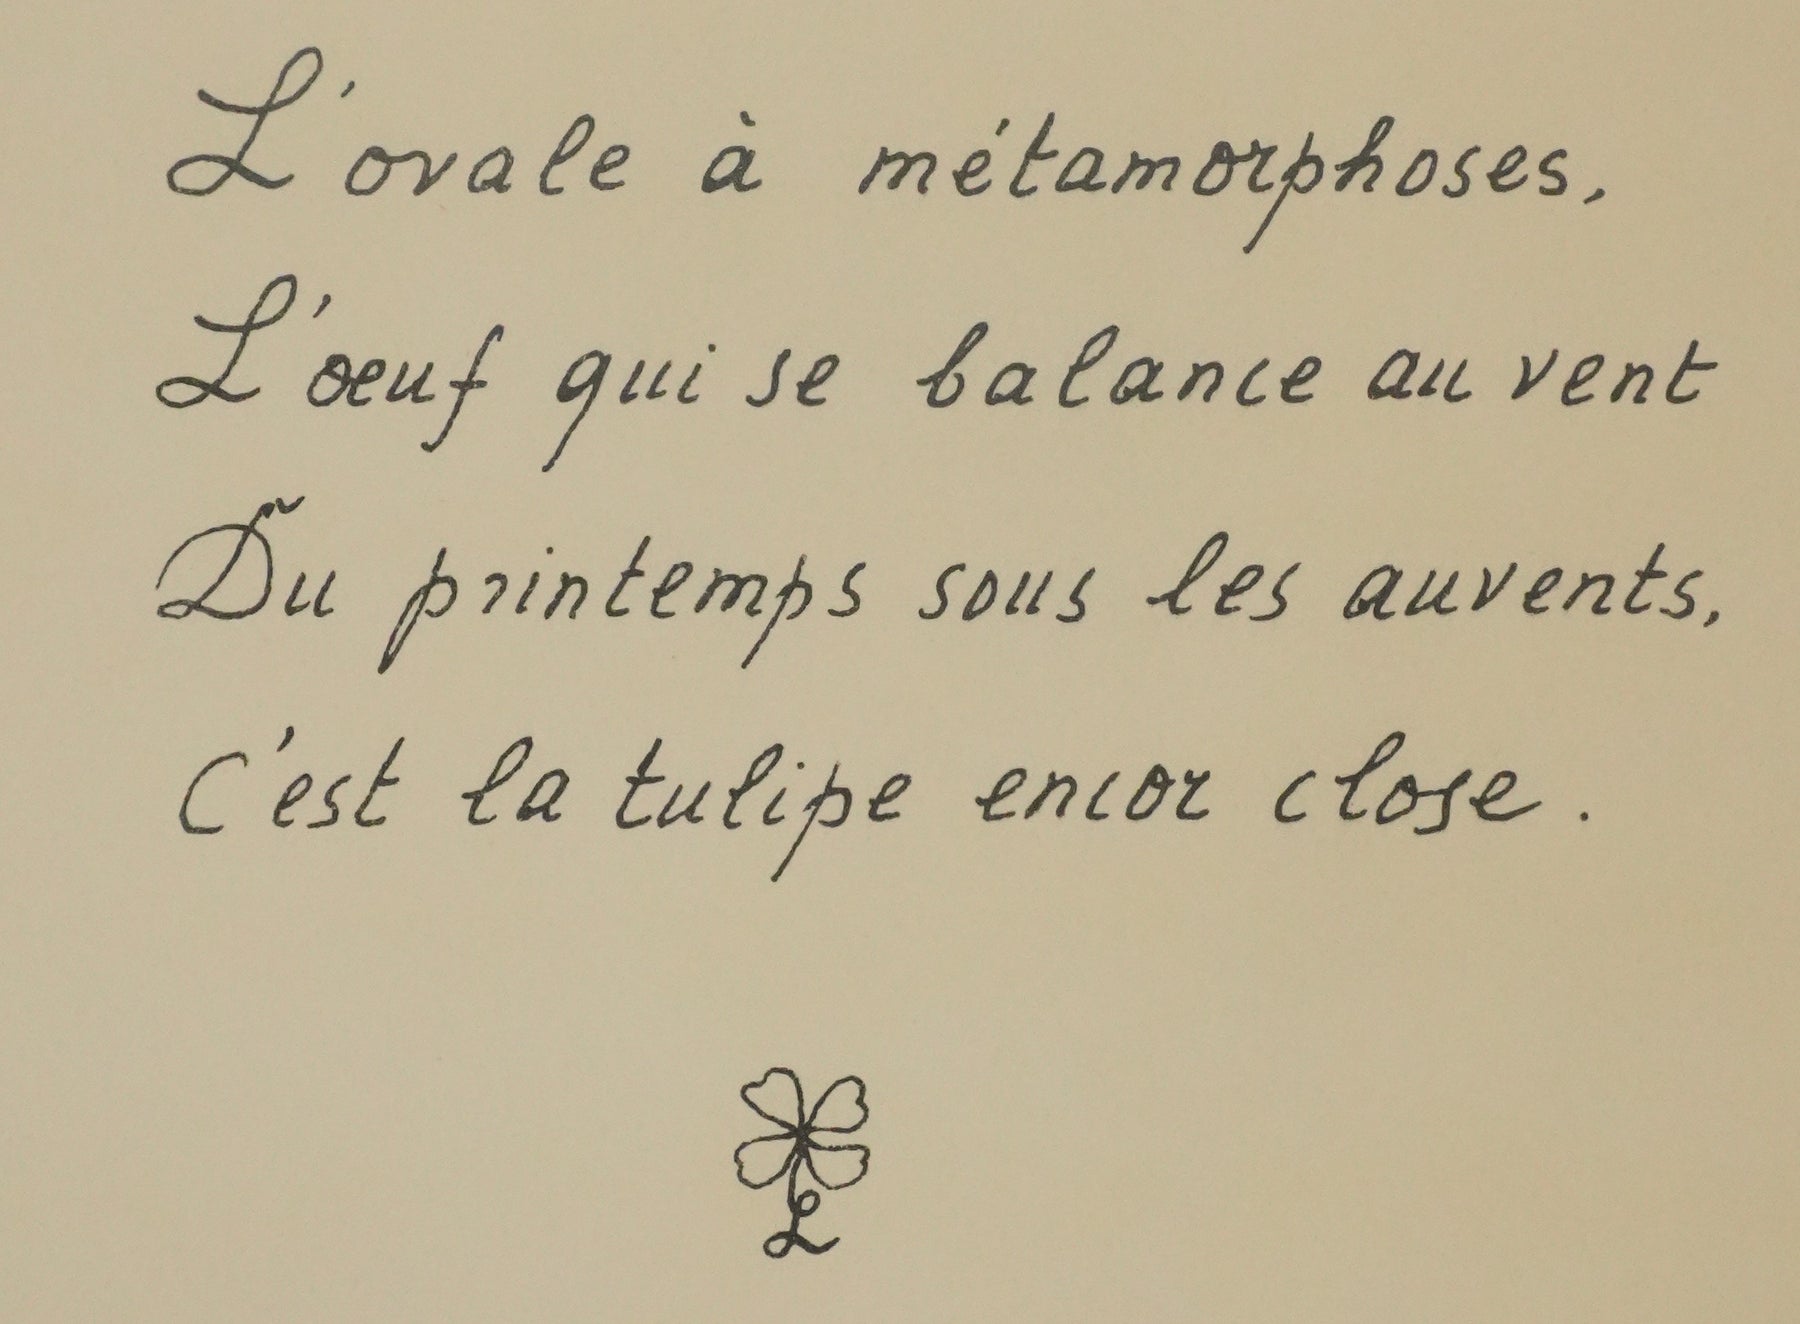 L'ovale à métamorphoses,
L'œuf qui se balance au vent
Du printemps sous les auvents,
C'est la tulipe encor close.
L